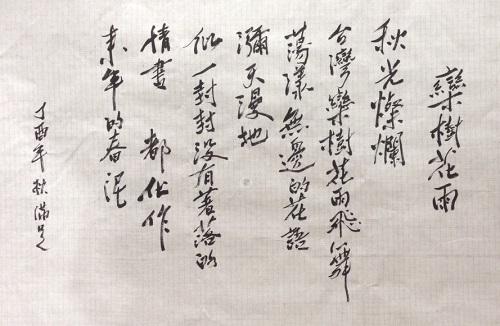 欒樹花雨
秋光燦爛
台灣欒樹花雨飛舞
蕩漾無邊的花語
瀰天漫地
似一封封沒有著落的
情書 都化作
來年的春泥
丁酉年秋 滿足